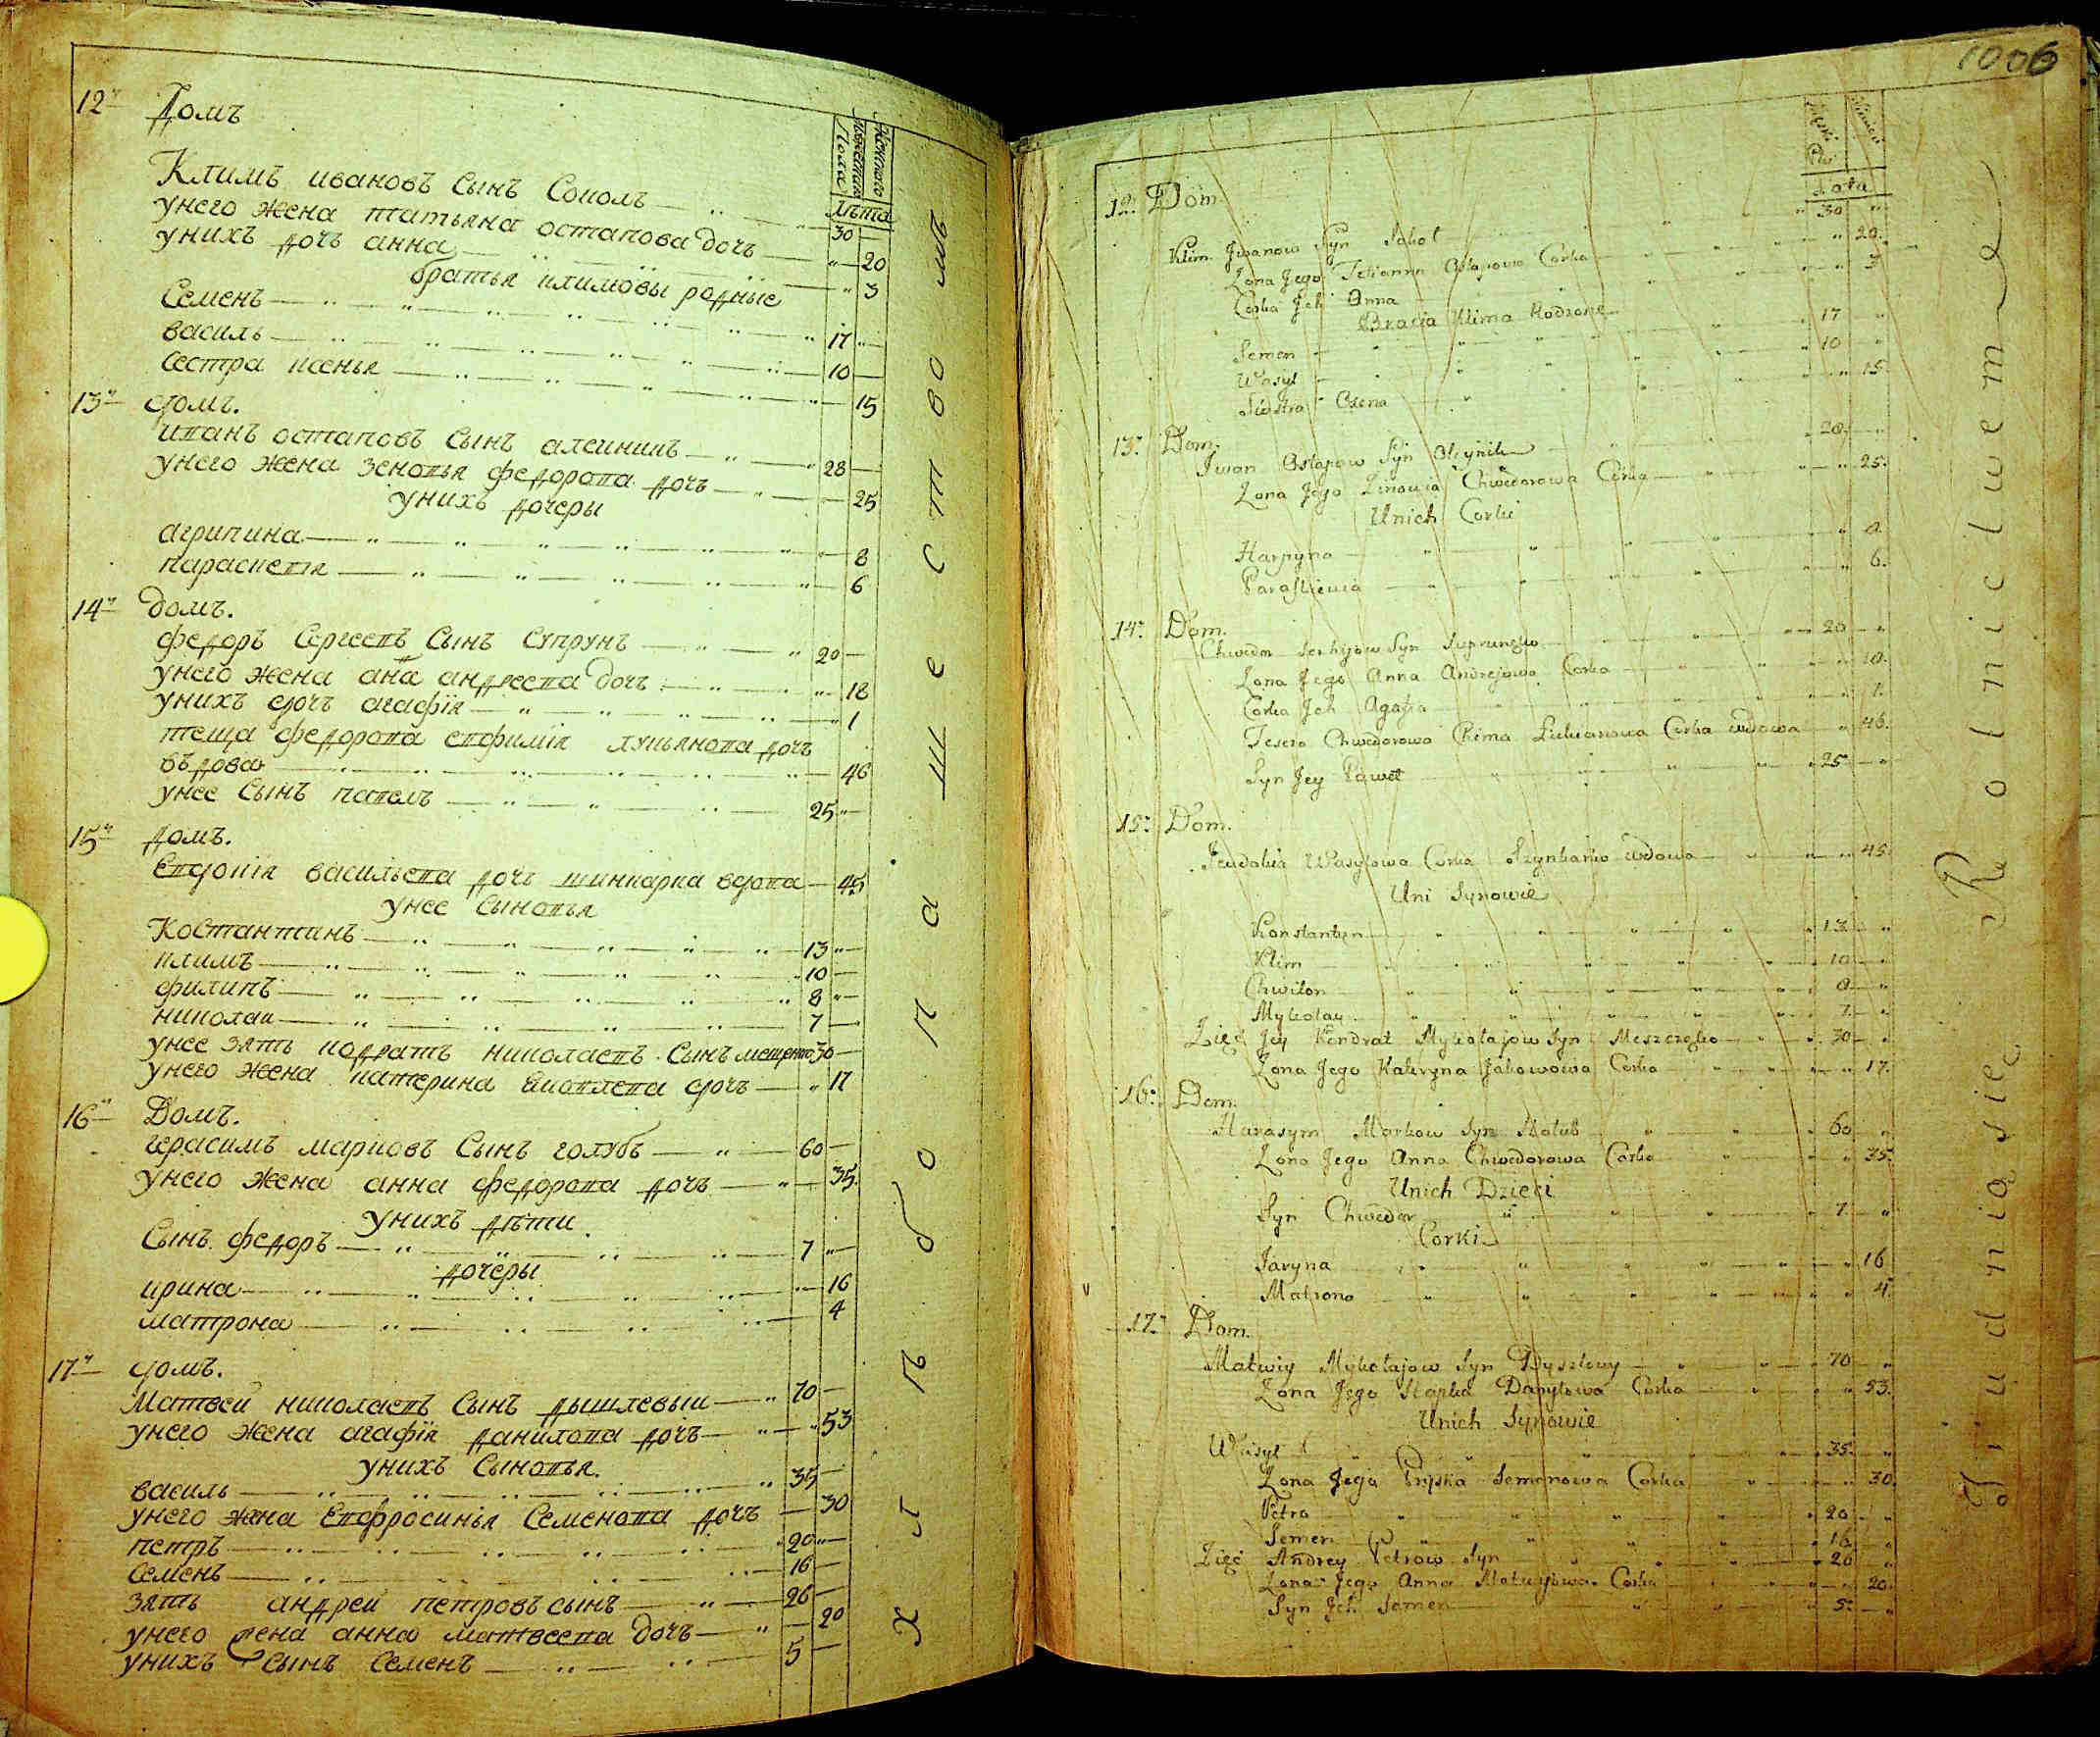 12й Домъ
Мужеска Пола
Женского
Лѣта
Климъ ивановъ Сынъ Соколъ 30
унего жена татьяна остапова дочъ 20
унихъ дочъ анна 3
братья климовы родные
Семенъ 17
василь 10
Сестра ксенья 15
13й домъ.
иванъ остаповъ Сынъ алейникъ 28
унего жена зеновья федорова дочъ 25
унихъ дочеры
агрипина 8
параскевія 6
14й домъ.
федоръ Сергеевъ Сынъ Супрунъ 20
унего жена анна андреева дочъ 18
унихъ дочъ агафія 1
теща федорова евфимія лукьянова дочъ
въдова 46
унее Сынъ павелъ 25
15й домъ.
Евдокія васильева дочъ шинкарка вдова 45
унее Сыновья
Костантинъ 13
климъ 10
филипъ 8
николай 7
унее зять кодратъ николаевъ Сынъ мещенко 30
унего жена катерина яковлева дочъ 17
16й Домъ.
герасимъ марковъ Сынъ голубъ 60
унего жена анна федорова дочъ 35
унихъ дѣти
Сынъ федоръ 7
дочеры
ирина 16
матрона 4
17й домъ.
Матвей николаевъ Сынъ дышлевый 70
унего жена агафія данилова дочъ 53
унихъ Сыновья.
василь 35
унего жена Евфросинья Семенова дочъ 30
петръ 20
Семенъ 16
зять андрей петровъ сынъ 26
унего жена анна матвеева дочъ 20
унихъ сынъ Семенъ 5
хлѣбопашествомъ
1006
Lata
12. Dom.
Klim Iwanow Syn Sokoł 30
Żona Jego Tetianna Ostapowa Corka 20.
Corka Jch Anna 3
Bracia Klima Rodzone
Semen 17
Wasyl 10
Siostra Oxena 15.
13. Dom.
Iwan Ostapow Syn Oleynik 28.
Żona Jego Zinowia Chwedorowa Corka 25.
Unich Corki
Harpyna 8.
Paraskiewia 6.
14. Dom.
Chwedor Serhijow Syn Suprunenko 20
Żona Jego Anna Andrejowa Corka 18.
Corka Jch Agafia 1.
Tescza Chwedorowa Chima Lukianowa Corka wdowa 46.
Syn Jey Paweł 25
15. Dom.
Jewdokia Wasylowa Corka Szynkarka wdowa 45.
Uni Synowie
Konstantyn 13
Klim 10
Chwilon 8
Mykołay 7
Zięć Jey Kondrat Mykołajow Syn Meszczenko 30
Żona Jego Kateryna Jakowowa Corka 17.
16. Dom.
Harasym Markow Syn Hołub 60
Żona Jego Anna Chwedorowa Corka 35.
Unich Dzieci
Syn Chwedor 7
Corki
Jaryna 16
Matrona 4.
17. Dom.
Matwiy Mykołajow Syn Dyszlowy 70
Żona Jego Hapka Danyłowa Corka 53.
Unich Synowie
Wasyl 35.
Żona Jego Pryska Semenowa Corka 30.
Petro 20
Semen 16
Zięć Andrey Petrow Syn 26
Żona Jego Anna Matwyjowa Corka 20.
Syn Jch Semen 5.
Trudnią się Rolnictwem